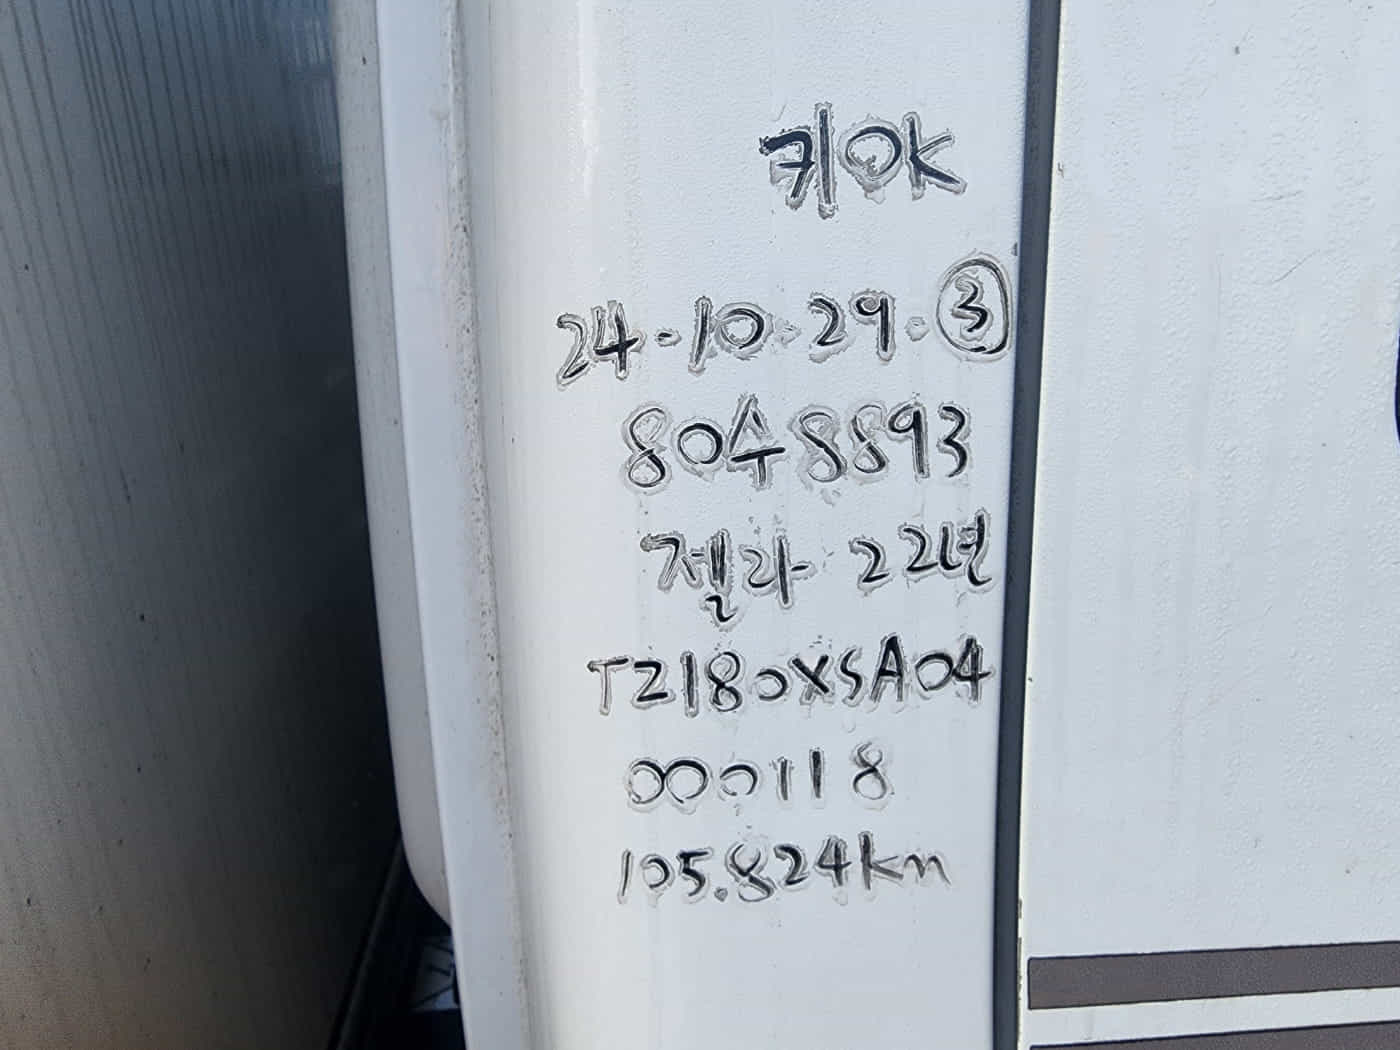 키OK
24.10.29.③
80수8893
젤라 22년
TZ180XSA04
000118
105.824km